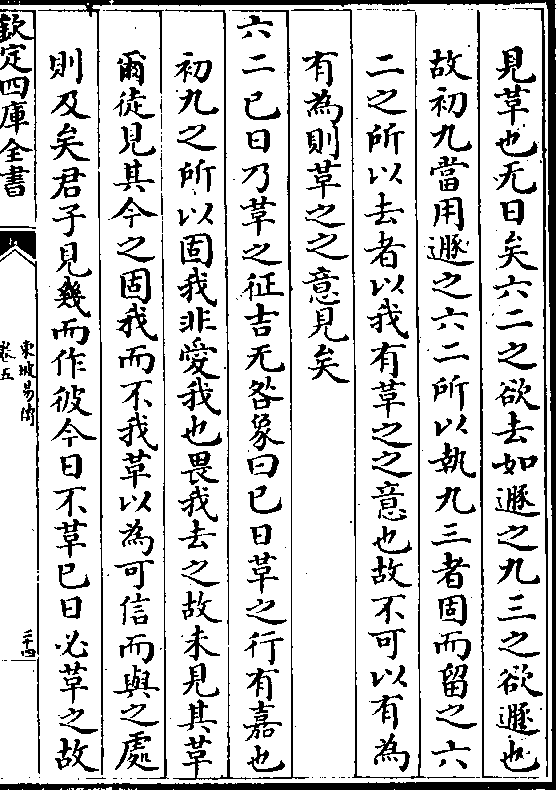 見革也无日矣六二之欲去如遯之九三之欲遯也
故初九當用遯之六二所以執九三者固而留之六
二之所以去者以我有革之之意也故不可以有為
有為則革之之意見矣
六二巳日乃革之征吉无咎象曰巳日革之行有嘉也
初九之所以固我非愛我也畏我去之故未見其革
爾徒見其今之固我而不我革以為可信而與之處
則及矣君子見幾而作彼今日不革巳日必革之故
欽定四庫全書
東坡易傳
卷五